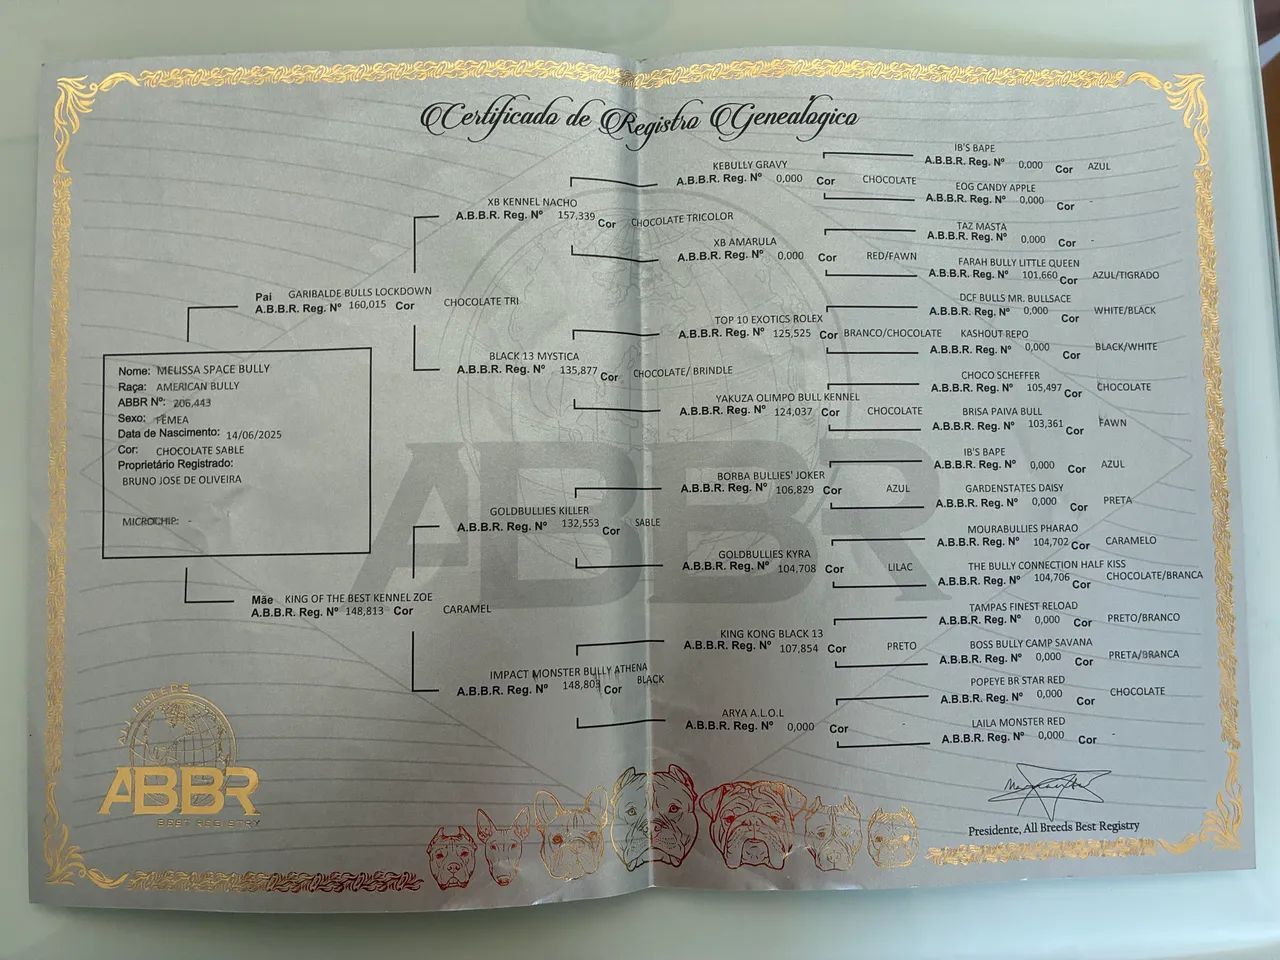 Certificado de Registro Genealógico
Nome: MELISSA SPACE BULLY
Raça: AMERICAN BULLY
ABBR Nº: 206,443
Sexo: FEMEA
Data de Nascimento: 14/06/2025
Cor: CHOCOLATE SABLE
Proprietário Registrado:
BRUNO JOSE DE OLIVEIRA
MICROCHIP: -
Pai GARIBALDE BULLS LOCKDOWN
A.B.B.R. Reg. Nº 160,015 Cor CHOCOLATE TRI
Mãe KING OF THE BEST KENNEL ZOE
A.B.B.R. Reg. Nº 148,813 Cor CARAMEL
XB KENNEL NACHO
A.B.B.R. Reg. Nº 157,339 Cor CHOCOLATE TRICOLOR
BLACK 13 MYSTICA
A.B.B.R. Reg. Nº 135,877 Cor CHOCOLATE/ BRINDLE
GOLDBULLIES KILLER
A.B.B.R. Reg. Nº 132,553 Cor SABLE
IMPACT MONSTER BULLY ATHENA
A.B.B.R. Reg. Nº 148,803 Cor BLACK
KEBULLY GRAVY
A.B.B.R. Reg. Nº 0,000 Cor CHOCOLATE
XB AMARULA
A.B.B.R. Reg. Nº 0,000 Cor RED/FAWN
TOP 10 EXOTICS ROLEX
A.B.B.R. Reg. Nº 125,525 Cor BRANCO/CHOCOLATE
YAKUZA OLIMPO BULL KENNEL
A.B.B.R. Reg. Nº 124,037 Cor CHOCOLATE
BORBA BULLIES' JOKER
A.B.B.R. Reg. Nº 106,829 Cor AZUL
GOLDBULLIES KYRA
A.B.B.R. Reg. Nº 104,708 Cor LILAC
KING KONG BLACK 13
A.B.B.R. Reg. Nº 107,854 Cor PRETO
ARYA A.L.O.L
A.B.B.R. Reg. Nº 0,000 Cor -
IB'S BAPE
A.B.B.R. Reg. Nº 0,000 Cor AZUL
EOG CANDY APPLE
A.B.B.R. Reg. Nº 0,000 Cor -
TAZ MASTA
A.B.B.R. Reg. Nº 0,000 Cor -
FARAH BULLY LITTLE QUEEN
A.B.B.R. Reg. Nº 101,660 Cor AZUL/TIGRADO
DCF BULLS MR. BULLSACE
A.B.B.R. Reg. Nº 0,000 Cor WHITE/BLACK
KASHOUT REPO
A.B.B.R. Reg. Nº 0,000 Cor BLACK/WHITE
CHOCO SCHEFFER
A.B.B.R. Reg. Nº 105,497 Cor CHOCOLATE
BRISA PAIVA BULL
A.B.B.R. Reg. Nº 103,361 Cor FAWN
IB'S BAPE
A.B.B.R. Reg. Nº 0,000 Cor AZUL
GARDENSTATES DAISY
A.B.B.R. Reg. Nº 0,000 Cor PRETA
MOURABULLIES PHARAO
A.B.B.R. Reg. Nº 104,702 Cor CARAMELO
THE BULLY CONNECTION HALF KISS
A.B.B.R. Reg. Nº 104,706 Cor CHOCOLATE/BRANCA
TAMPAS FINEST RELOAD
A.B.B.R. Reg. Nº 0,000 Cor PRETO/BRANCO
BOSS BULLY CAMP SAVANA
A.B.B.R. Reg. Nº 0,000 Cor PRETA/BRANCA
POPEYE BR STAR RED
A.B.B.R. Reg. Nº 0,000 Cor CHOCOLATE
LAILA MONSTER RED
A.B.B.R. Reg. Nº 0,000 Cor -
ABBR
ALL BREEDS
ABBR
BEST REGISTRY
Presidente, All Breeds Best Registry